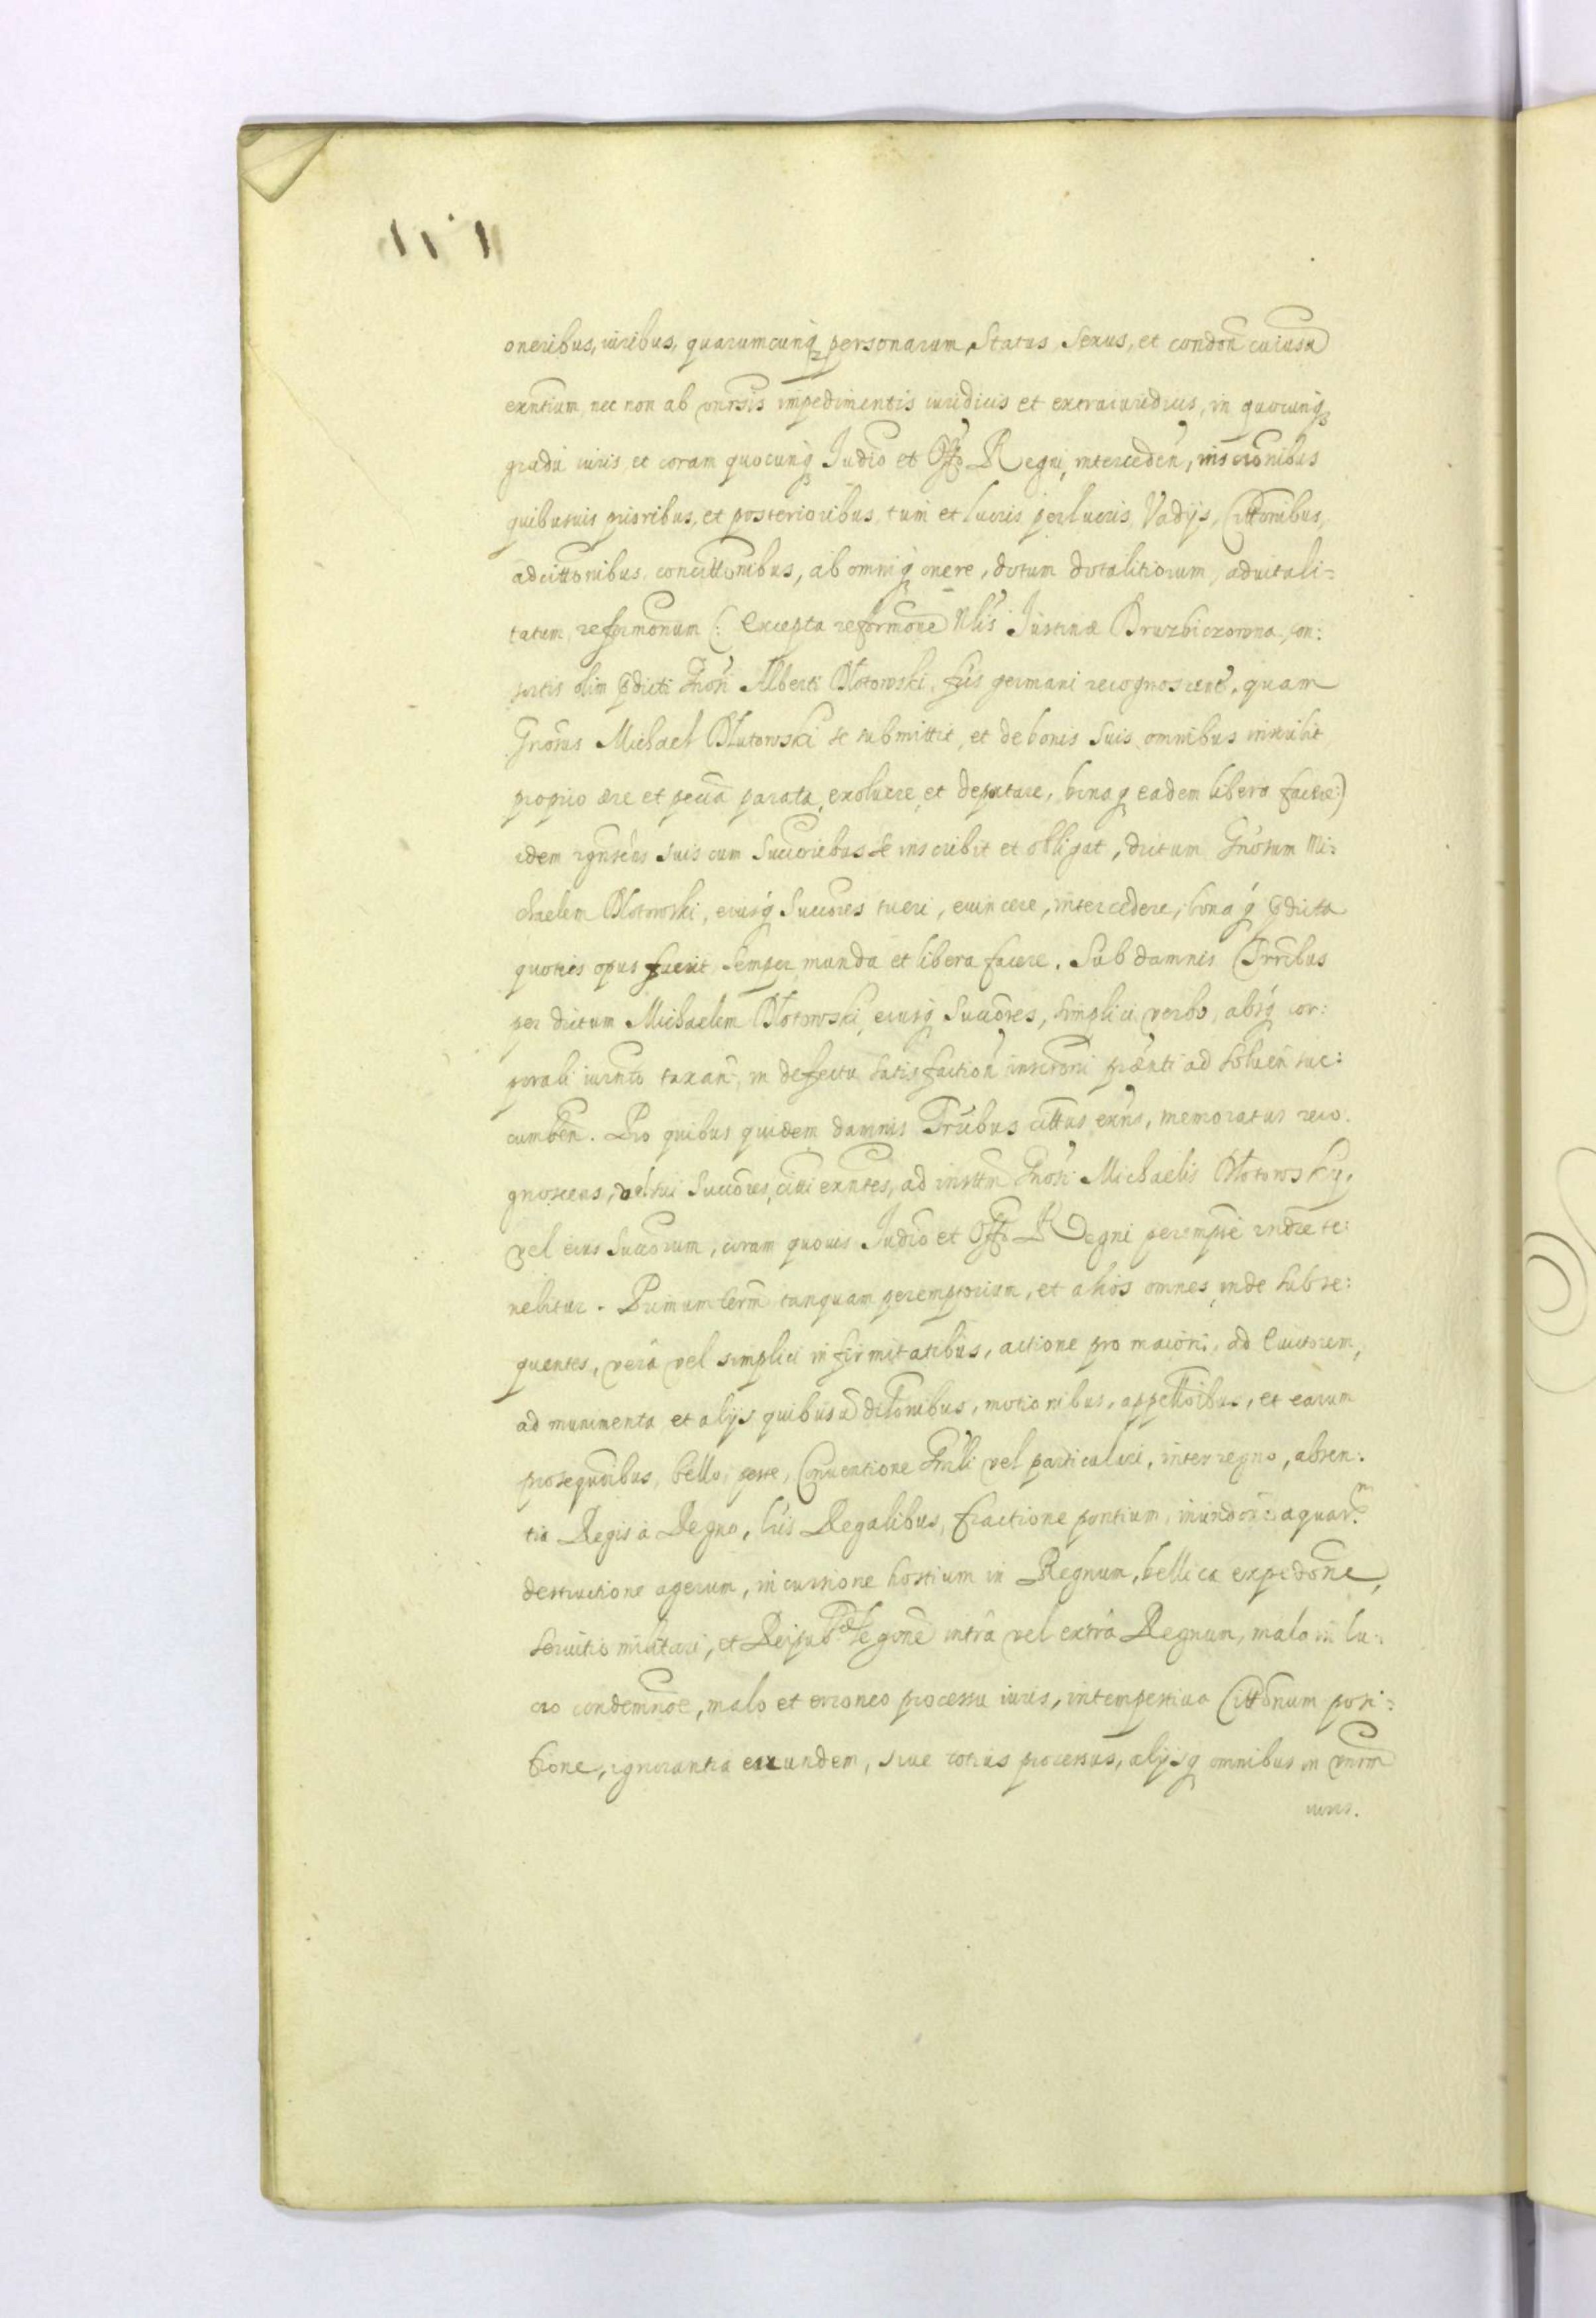 oneribus, iuribus, quarumcunq personarum, Status Sexus, et condōn cuiusu
exntium, nec non ab vnirsis impedimentis iuridicis et extraiuridicis, in quocunq
gradu iuris, et coram quocunq Judio et Offo Regni, interceden, inscronibus
quibusuis prioribus, et posterioribus, tum et lucris perlucris, Vadijs, Cittonibus,
adcittonibus, concittonibus, ab omniq onere, dotum dotalitiorum, aduitali=
tatum, reformonum (: Excepta reformone Nlis Justinæ Druzbiczowna, con:
sortis olim pdicti Gnosi Alberti Dłotowski, fris germani recognoscent, quam
Gnosus Michael Dłutowski se submittit, et de bonis suis omnibus inscribit
proprio ære et pecia parata, exoluere, et deputare, bonaq eadem libera facere:)
idem rgnscens suis cum Succoribus se inscribit et obligat, dictum Gnosum Mi:
chaelem Dłotowski, eiusq Succores tueri, euincere, intercedere, bonaq pdicta
quoties opus fuerit, semper munda et libera facere. Sub damnis Trribus
per dictum Michaelem Dłotowski, eiusq Succores, simplici verbo, absq cor:
porali iurnto taxan, in defectu satisfaction inscroni prænti ad soluen suc:
cumben. Pro quibus quidem damnis Trribus cittus exns, memoratus reco.
gnoscens, vel sui Succores, citti exntes, ad insttm Gnosi Michaelis Dłotowsky,
vel eius Succorum, coram quouis Judio et Offo Regni peremptie rndre te:
nebitur. Primum term tanquam peremptorium, et alios omnes, inde subse:
quentes, vera vel simplici infirmitatibus, actione pro maiori, ad Euictorem,
ad munimenta et alijs quibusu diltonibus, motionibus, appellōibus, et earum
prosequōnibus, bello, peste, Conuentione Gnrli vel particulari, interregno, absen:
tia Regis à Regno, Lris Regalibus, fractione pontium, inundōne aquarm
destructione agerum, incursione hostium in Regnum, bellica expedōne,
Seruitio militari, et Reipubcæ legōne intrà vel extrà Regnum, malo in lu:
cro condemnōe, malo et erroneo processu iuris, intempestiua Cittōnum posi:
tione, ignorantia earundem, siue totius processus, alijsq omnibus in vnrm
iuris.